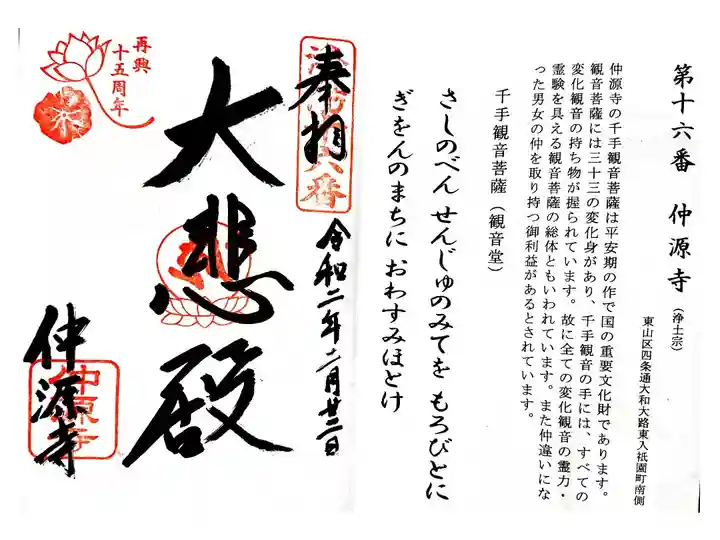 第十六番 仲源寺(浄土宗)
東山区四条通大和大路東入祇園町南側
仲源寺の千手観音菩薩は平安期の作で国の重要文化財であります。
観音菩薩には三十三の変化身があり、千手観音の手には、すべての
変化観音の持ち物が握られています。故に全ての変化観音の霊力・
霊験を具える観音菩薩の総体ともいわれています。また仲違いにな
った男女の仲を取り持つ御利益があるとされています。
千手観音菩薩(観音堂)
さしのべん せんじゅのみてを もろびとに
ぎをんのまちに おわすみほとけ
奉拝
令和二年二月廿二日
大悲殿
仲源寺
仲源寺
再興
十五周年